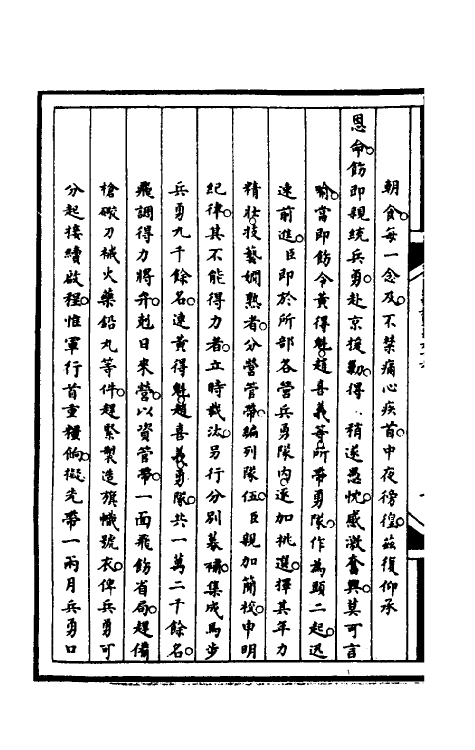 朝食每一念及不禁痛心疾首中夜徬徨茲復仰承
恩命飭即親統兵勇赴京援勦得稍遂愚忱感激奮興莫可言
喻當即飭令黃得魁趙喜義等所帶勇隊作為頭二起迅
速前進臣即於所部各營兵勇隊內逐加挑選擇其年力
精壯技藝嫻熟者分營管帶編列隊伍臣親加簡校申明
紀律其不能得力者立時裁汰另行分別募補集成馬步
兵勇九千餘名連黃得魁趙喜義勇隊共一萬二千餘名
飛調得力將弁剋日來營以資管帶一面飛飭省局趕備
槍礮刀械火藥鉛丸等件趕緊製造旗幟號衣俾兵勇可
分起接續啟程惟軍行首重糧餉擬先帶一兩月兵勇口